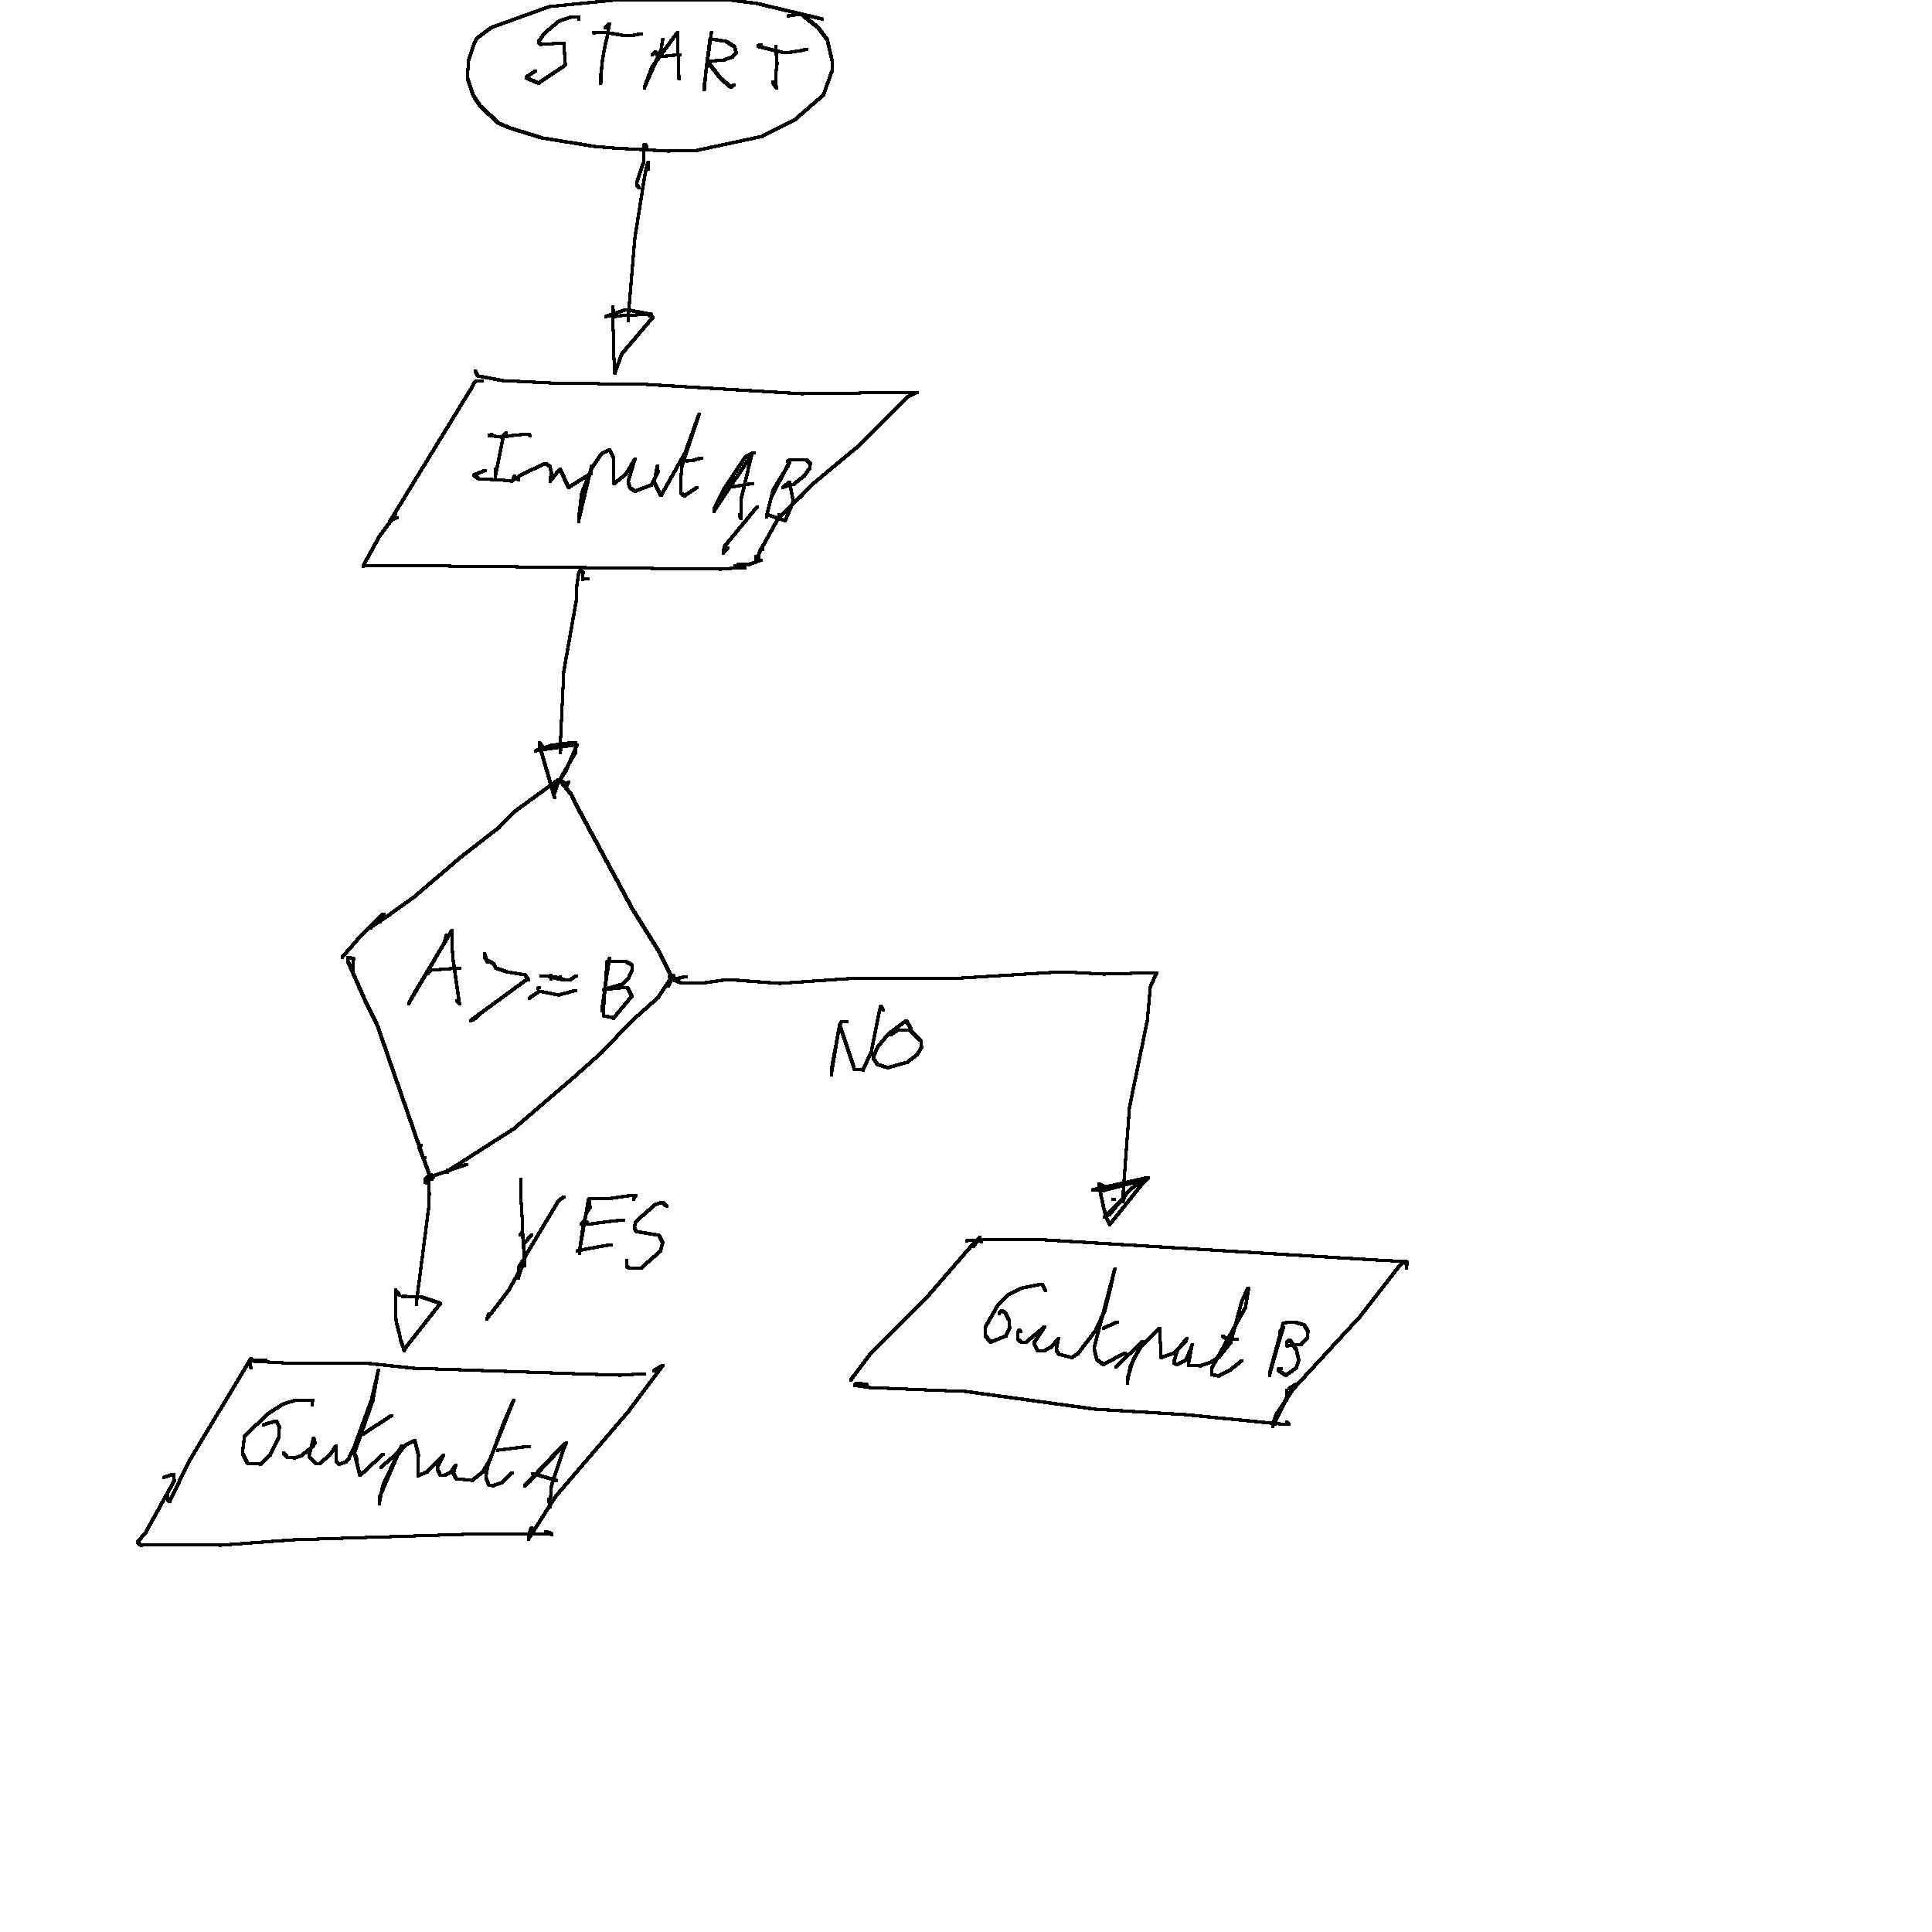 START
Input A, B
A >= B
NO
YES
Output B
Output A